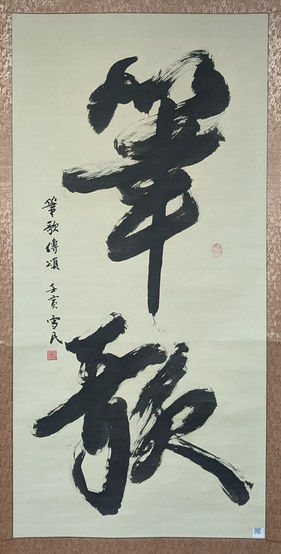 筆歌
筆歌傳頌 壬寅雪民